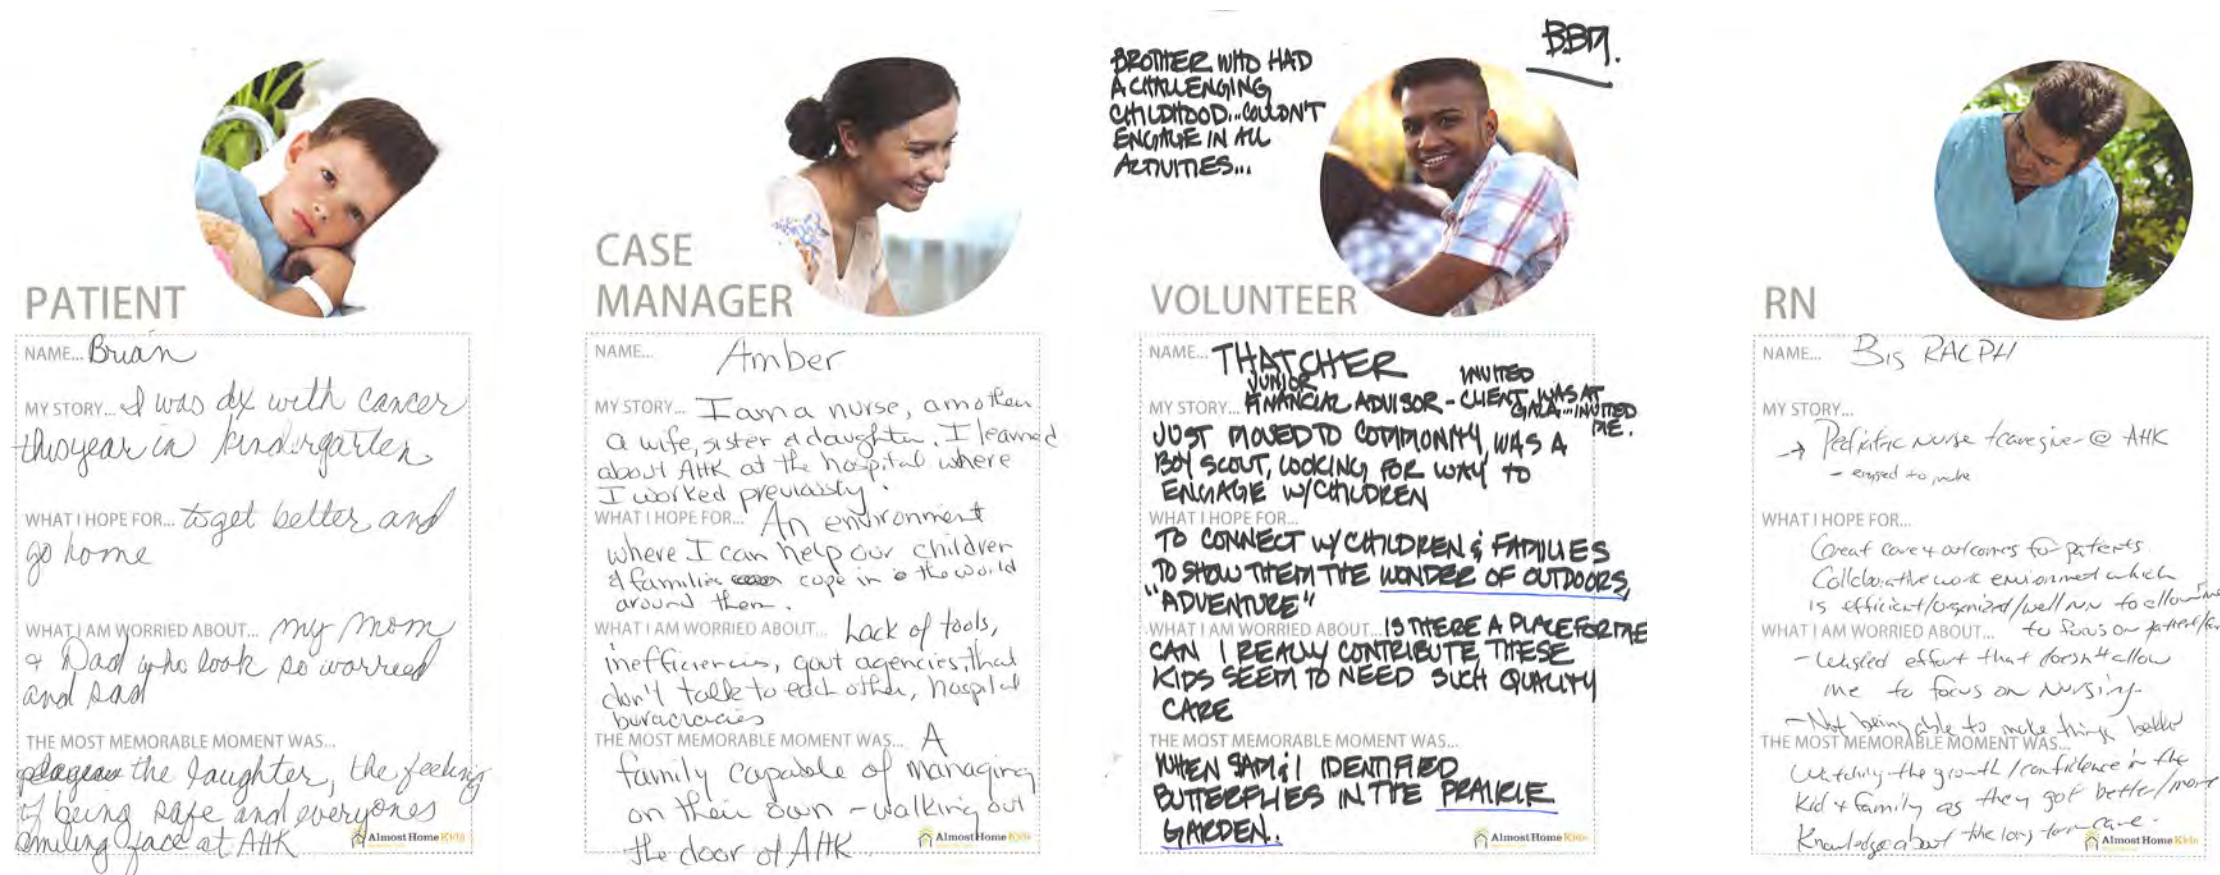 PATIENT
NAME... Brian
MY STORY... I was dx with cancer
this year in kindergarten.
WHAT I HOPE FOR... to get better and
go home
WHAT I AM WORRIED ABOUT... my mom
& Dad who look so worried
and sad
THE MOST MEMORABLE MOMENT WAS...
the laughter, the feeling
of being safe and everyones
smiling face at AHK
Almost Home Kids
CASE
MANAGER
NAME... Amber
MY STORY... I am a nurse, a mother
a wife, sister & daughter. I learned
about AHK at the hospital where
I worked previously.
WHAT I HOPE FOR... An environment
where I can help our children
& families cope in the world
around them.
WHAT I AM WORRIED ABOUT... Lack of tools,
inefficiencies, govt agencies, that
don't talk to each other, hospital
buracracies
THE MOST MEMORABLE MOMENT WAS... A
family capable of managing
on their own - walking out
the door of AHK
Almost Home Kids
BROTHER WHO HAD
A CHALLENGING
CHILDHOOD...COULDN'T
ENGAGE IN ALL
ACTIVITIES...
VOLUNTEER
NAME... THATCHER
JUNIOR INVITED
MY STORY... FINANCIAL ADVISOR - CLIENT WAS AT
GALA...INVITED
ME.
JUST MOVED TO COMMUNITY, WAS A
BOY SCOUT, LOOKING FOR WAY TO
ENGAGE W/CHILDREN
WHAT I HOPE FOR...
TO CONNECT W/ CHILDREN & FAMILIES
TO SHOW THEM THE WONDER OF OUTDOORS,
"ADVENTURE"
WHAT I AM WORRIED ABOUT... IS THERE A PLACE FOR ME
CAN I REALLY CONTRIBUTE THESE
KIDS SEEM TO NEED SUCH QUALITY
CARE
THE MOST MEMORABLE MOMENT WAS...
WHEN SAM & I IDENTIFIED
BUTTERFLIES IN THE PRAIRIE
GARDEN.
Almost Home Kids
RN
NAME... Big RALPH
MY STORY...
→ Pediatric nurse + caregiver @ AHK
- to make
WHAT I HOPE FOR...
Great care + outcomes for patients.
Collaborative work environment which
is efficient/organized/well run to allow me
to focus on patient/
WHAT I AM WORRIED ABOUT...
- Wasted effort that doesn't allow
me to focus on Nursing.
- Not being able to make things better
THE MOST MEMORABLE MOMENT WAS...
Watching the growth / confidence in the
kid + family as they got better / more
Knowledge about the long term care.
Almost Home Kids